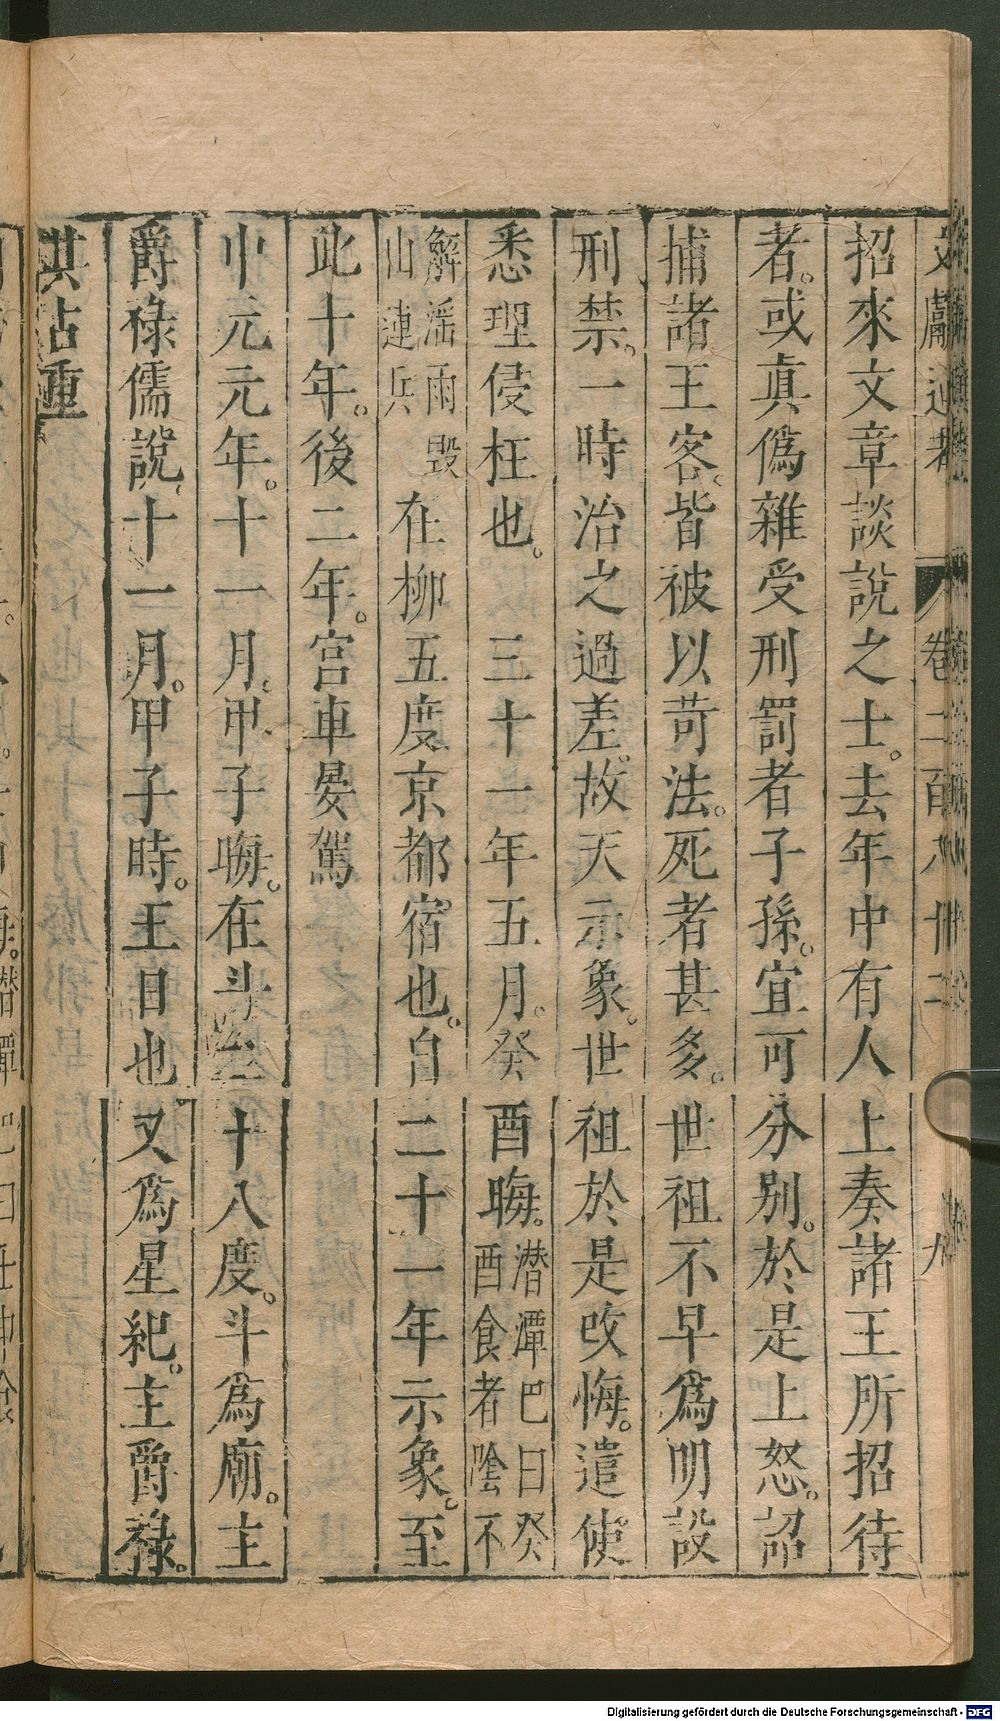 文獻通考　卷二百八十二　九
招來文章談說之士。去年中有人上奏諸王所招待
者。或真僞雜受刑罰者子孫。宜可分別。於是上怒。詔
捕諸王客。皆被以苛法。死者甚多。世祖不早爲明設
刑禁。一時治之過差。故天示象。世祖於是改悔。遣使
悉理侵枉也。三十一年五月。癸酉晦。潜潭巴曰癸酉食者陰不
解滛雨毀山連兵在柳五度京都宿也。自二十一年示象。至
此十年。後二年。宮車晏駕
中元元年。十一月。甲子晦。在斗二十八度。斗爲廟。主
爵祿儒說。十一月。甲子時。王日也又爲星紀。主爵祿。
其占重
Digitalisierung gefördert durch die Deutsche Forschungsgemeinschaft - DFG